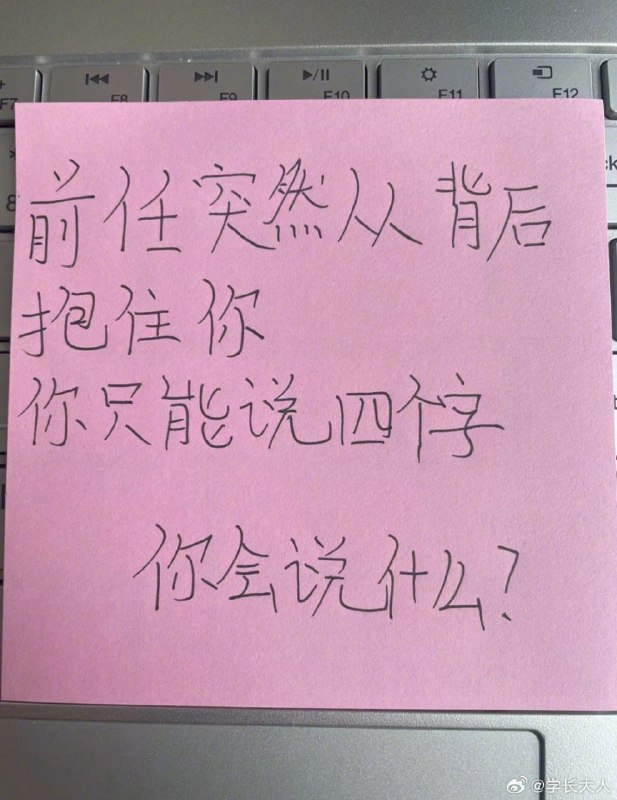 F7 F8 F9 F10 F11 F12
前任突然从背后
抱住你
你只能说四个字
你会说什么?
@学长大人